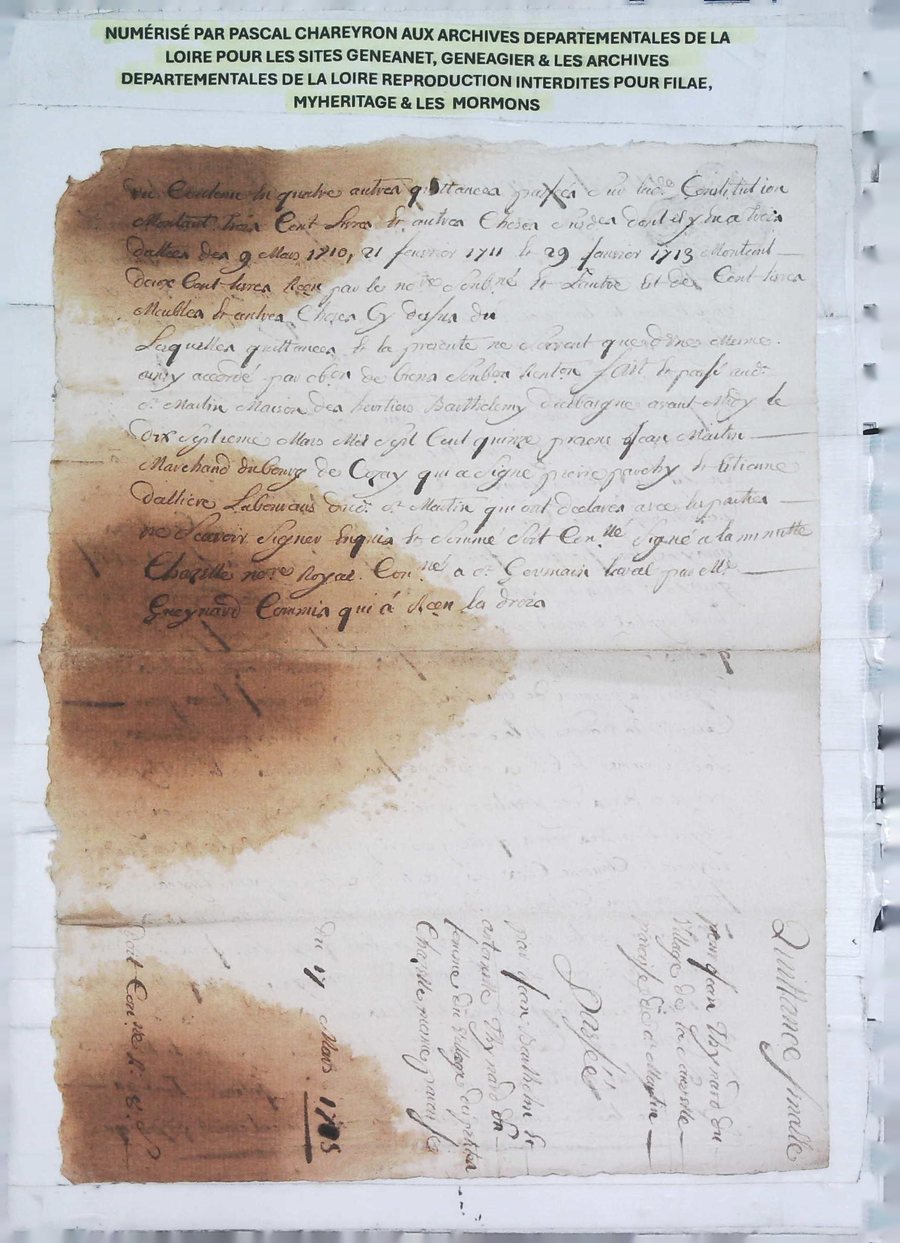 NUMÉRISÉ PAR PASCAL CHAREYRON AUX ARCHIVES DEPARTEMENTALES DE LA
LOIRE POUR LES SITES GENEANET, GENEAGIER & LES ARCHIVES
DEPARTEMENTALES DE LA LOIRE REPRODUCTION INTERDITES POUR FILAE,
MYHERITAGE & LES MORMONS
de quatre autres quittances Constitution
Montant trois Cent livres & autres Choses dont il y en a trois
dattées des 9 Mars 1710, 21 feuvrier 1711 & 29 feuvrier 1713 Montant
deux Cent livres par le no.re & L'autre Est de Cent livres
Meubles & autres Choses Cy dessus du
Lesquelles quittances & la presente ne que d'Une Mesme
ainsy accordé par de biens fait & passé aud.
St Martin Maison des heritiers Barthelemy avant Midy le
Dix Septieme Mars Mil Sept Cent quinze presens Jean Martin
Marchand du bourg de Cezay qui a Signé pierre & Etienne
dalliere Laboureurs dud. St Martin qui ont declarés avec les parties
ne Scavoir Signer Enquis & Sommé Soit Con.lle Signé a la minutte
Chazelle no.re Royal. Con.llé a St Germain laval par M.e
Commis qui á Receu les droits
Quittance finalle
pour Jean Thynard du
Village de la
paroisse de St Martin
Passée
par Jean &
Thynard Sa
femme du Village
mesme paroisse
du 17 Mars 1715
Soit Con.lle